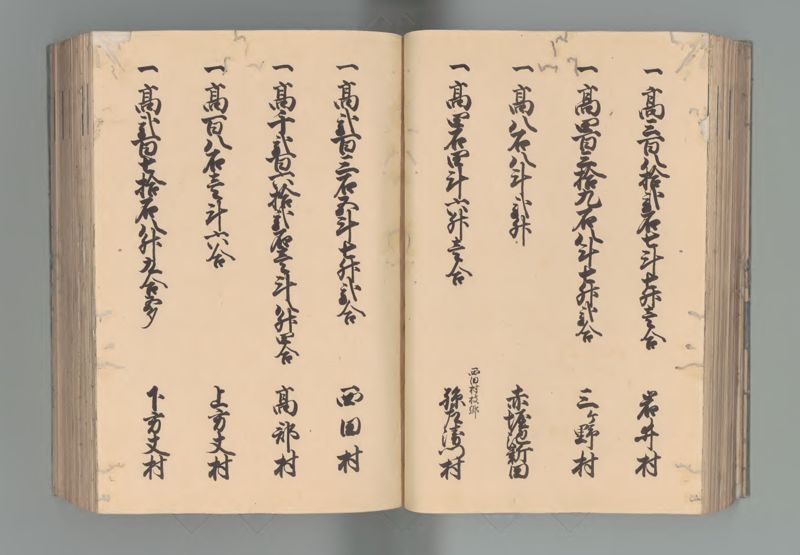 一高三百八拾弐石七斗七升壱合 岩井村
一高四百三拾九石八斗七升弐合 三ヶ野村
一高八石八斗弐升 赤 新田
一高四石四斗六升壱合 西田村枝郷 孫左衛門村
一高弐百三石五斗七升弐合 西田村
一高千弐百六拾弐石壱斗八升四合 高部村
一高百八石壱斗六合 上方丈村
一高弐百七拾石八升九合余 下方丈村